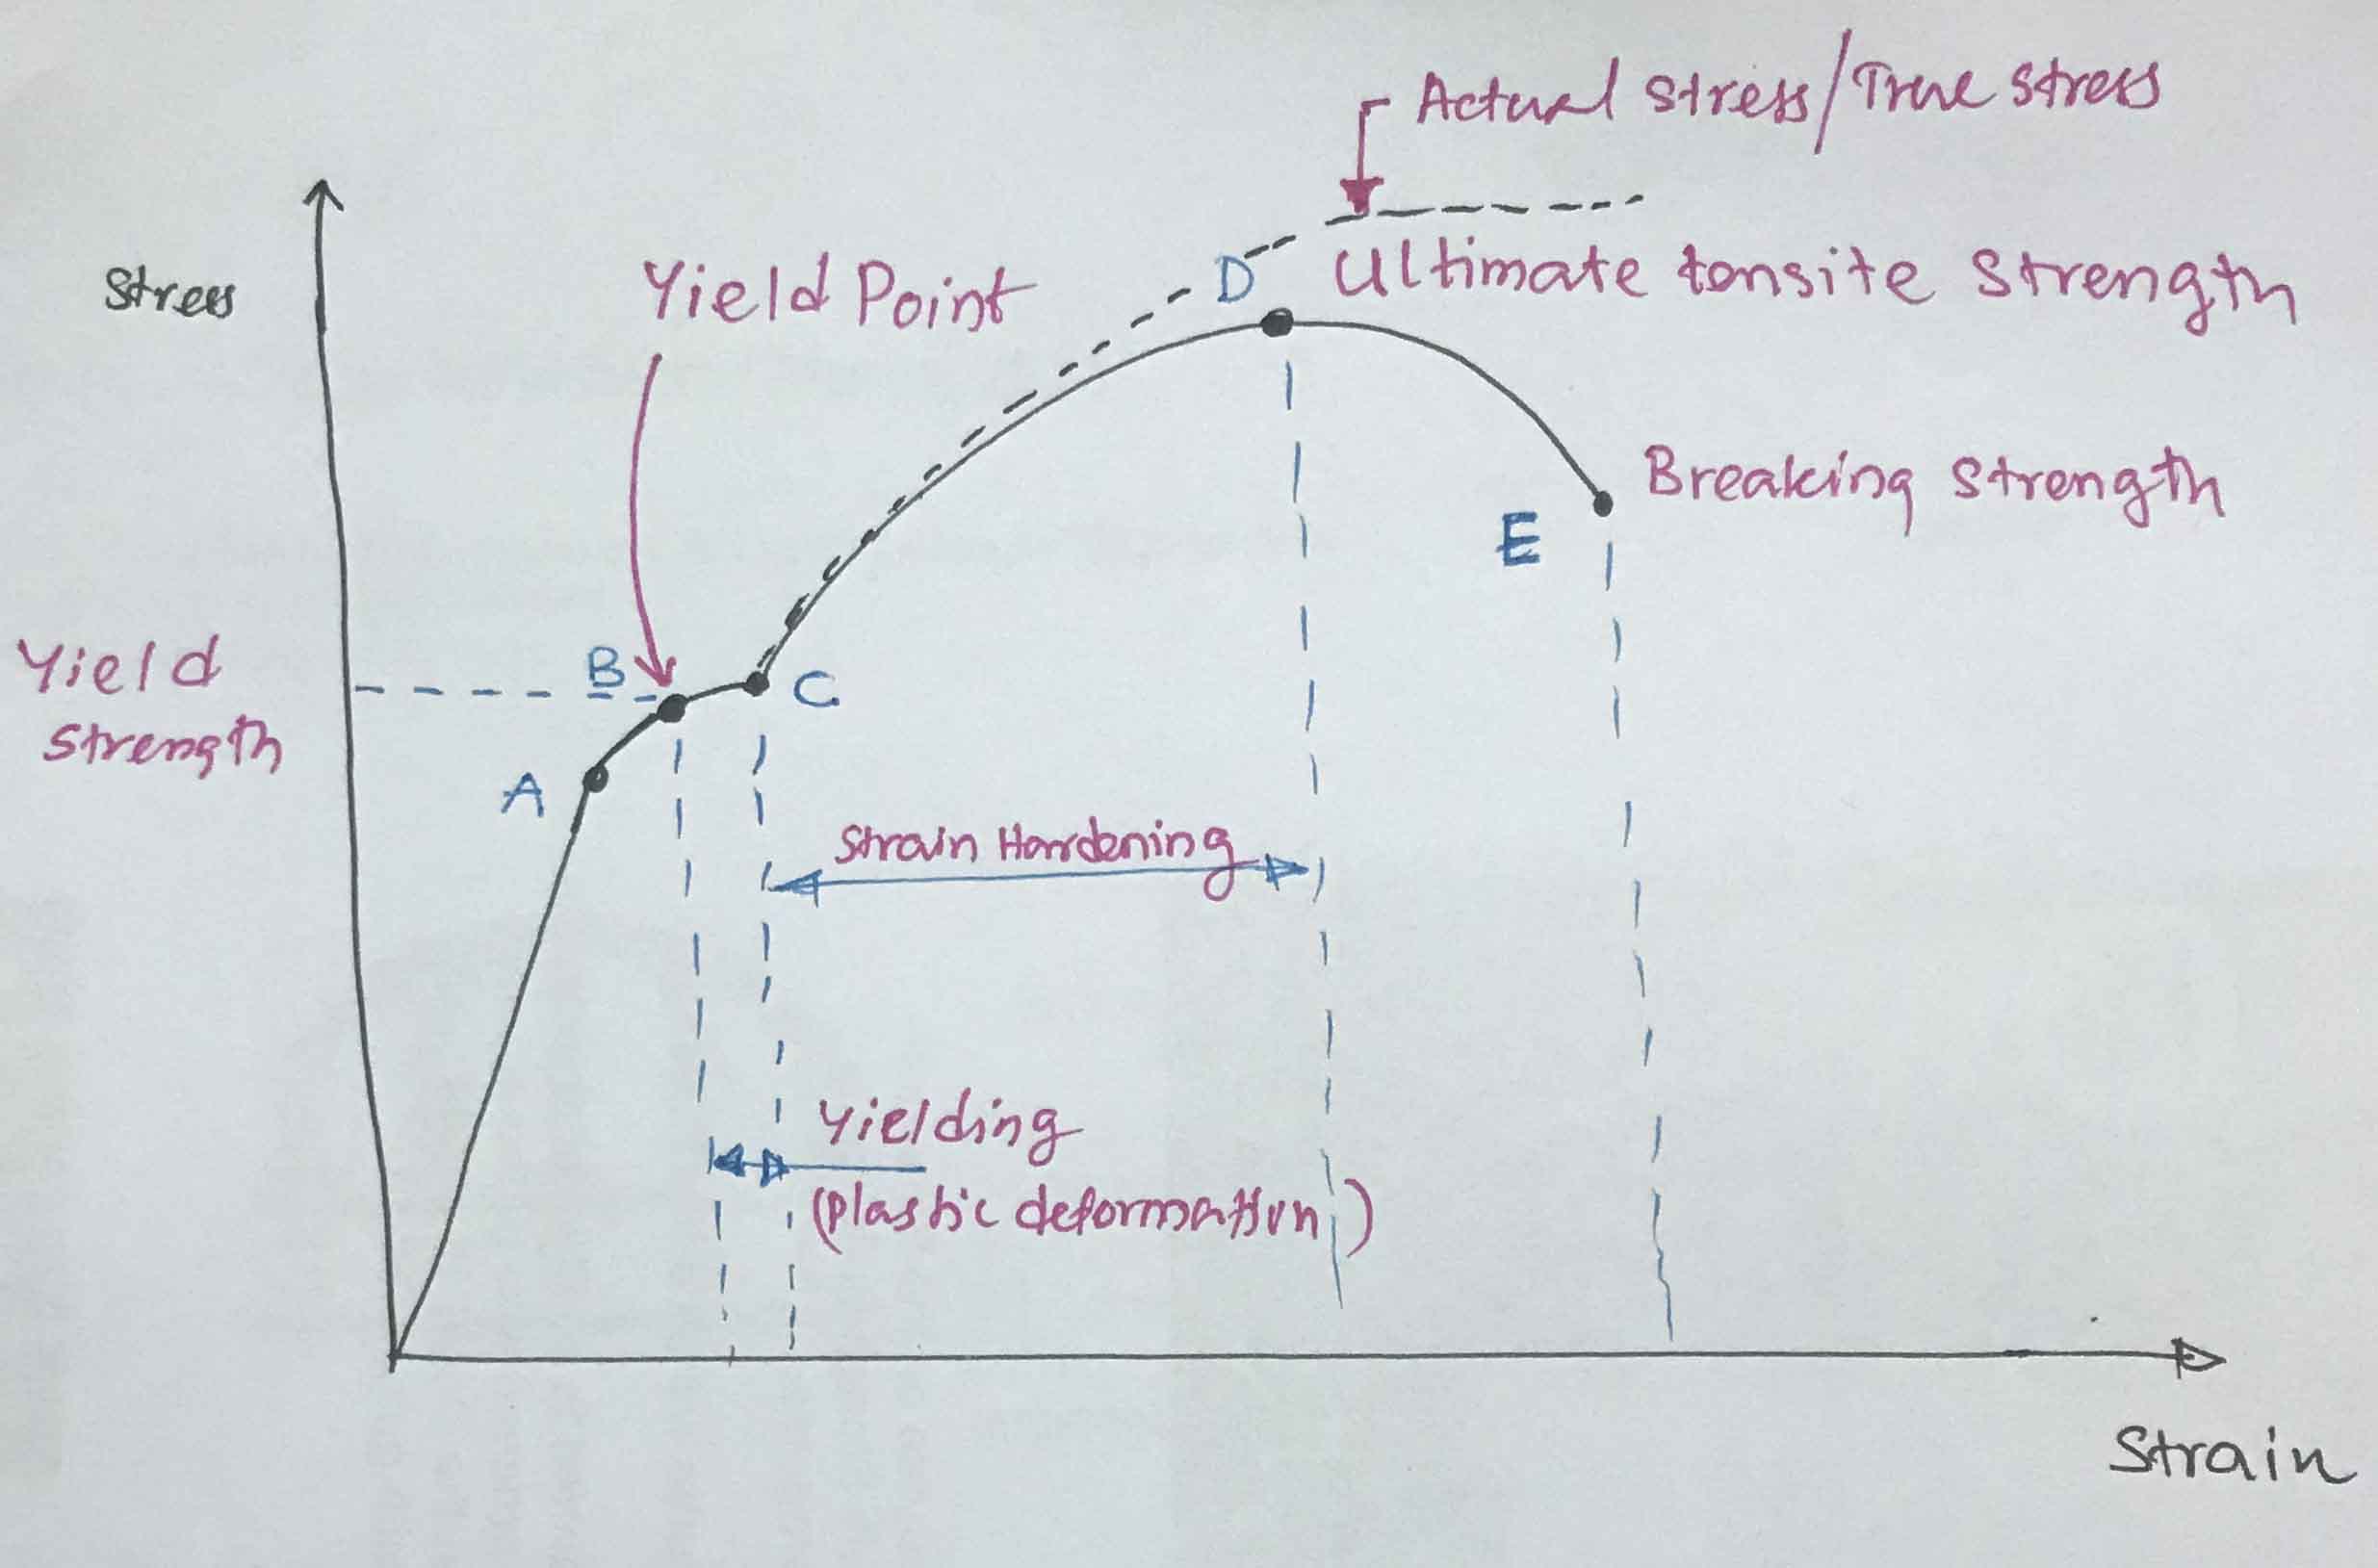 Actual stress/True stress
Stress
Yield Point
D
Ultimate tensite Strength
Breaking Strength
E
Yield
Strength
B
C
A
Strain Hardening
Yielding
(Plastic deformation)
Strain